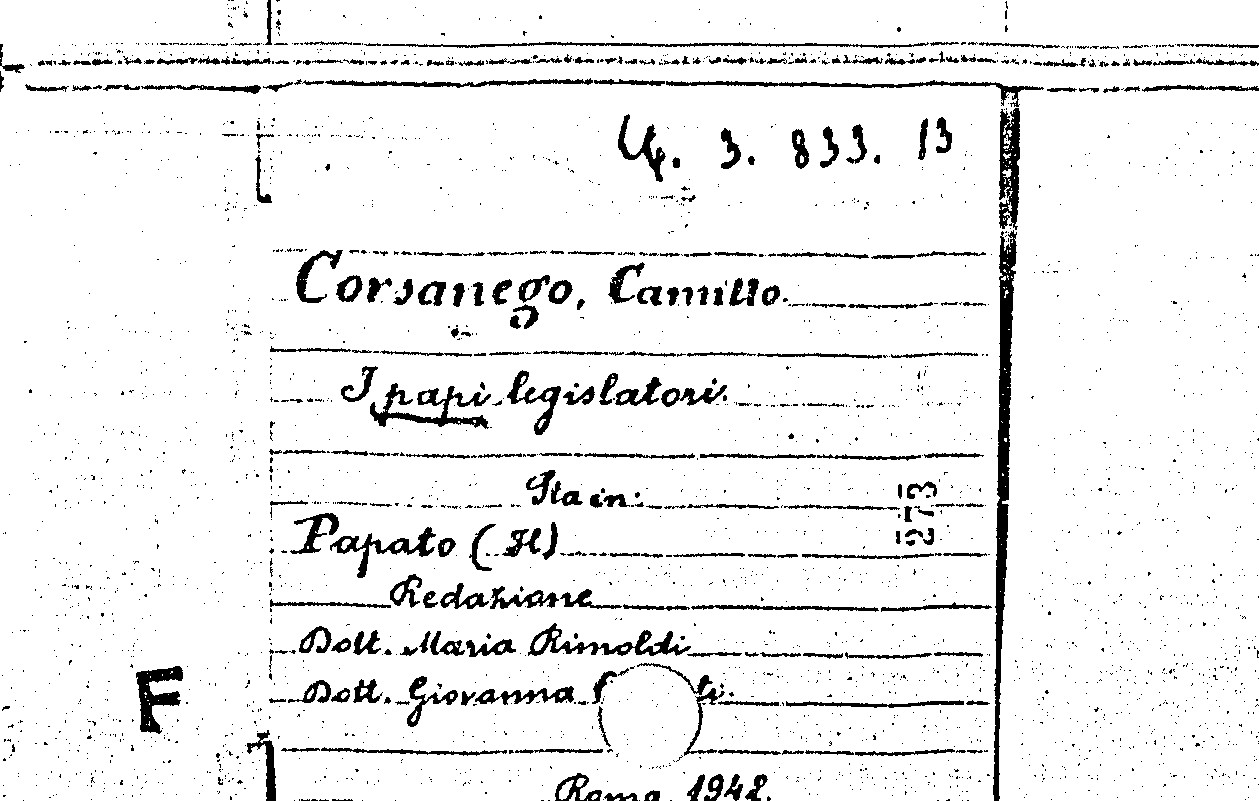 4. 3. 833. 13
Corsanego, Camillo.
I papi legislatori.
Sta in:
273
Papato (Il)
Redazione
Dott. Maria Rimoldi
Dott. Giovanna
F
Roma 1942.